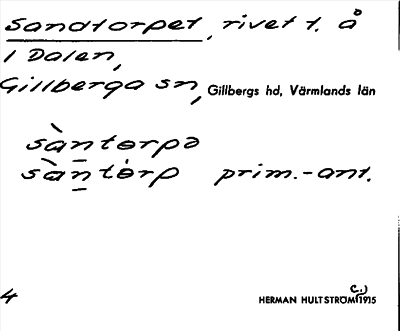 Sandtorpet, rivet t. å
i Dalen,
Gillberga sn, Gillbergs hd, Värmlands län
sàntorpə
sàntȯrp prim.-ant.
4 HERMAN HULTSTRÖM (c.) 1915